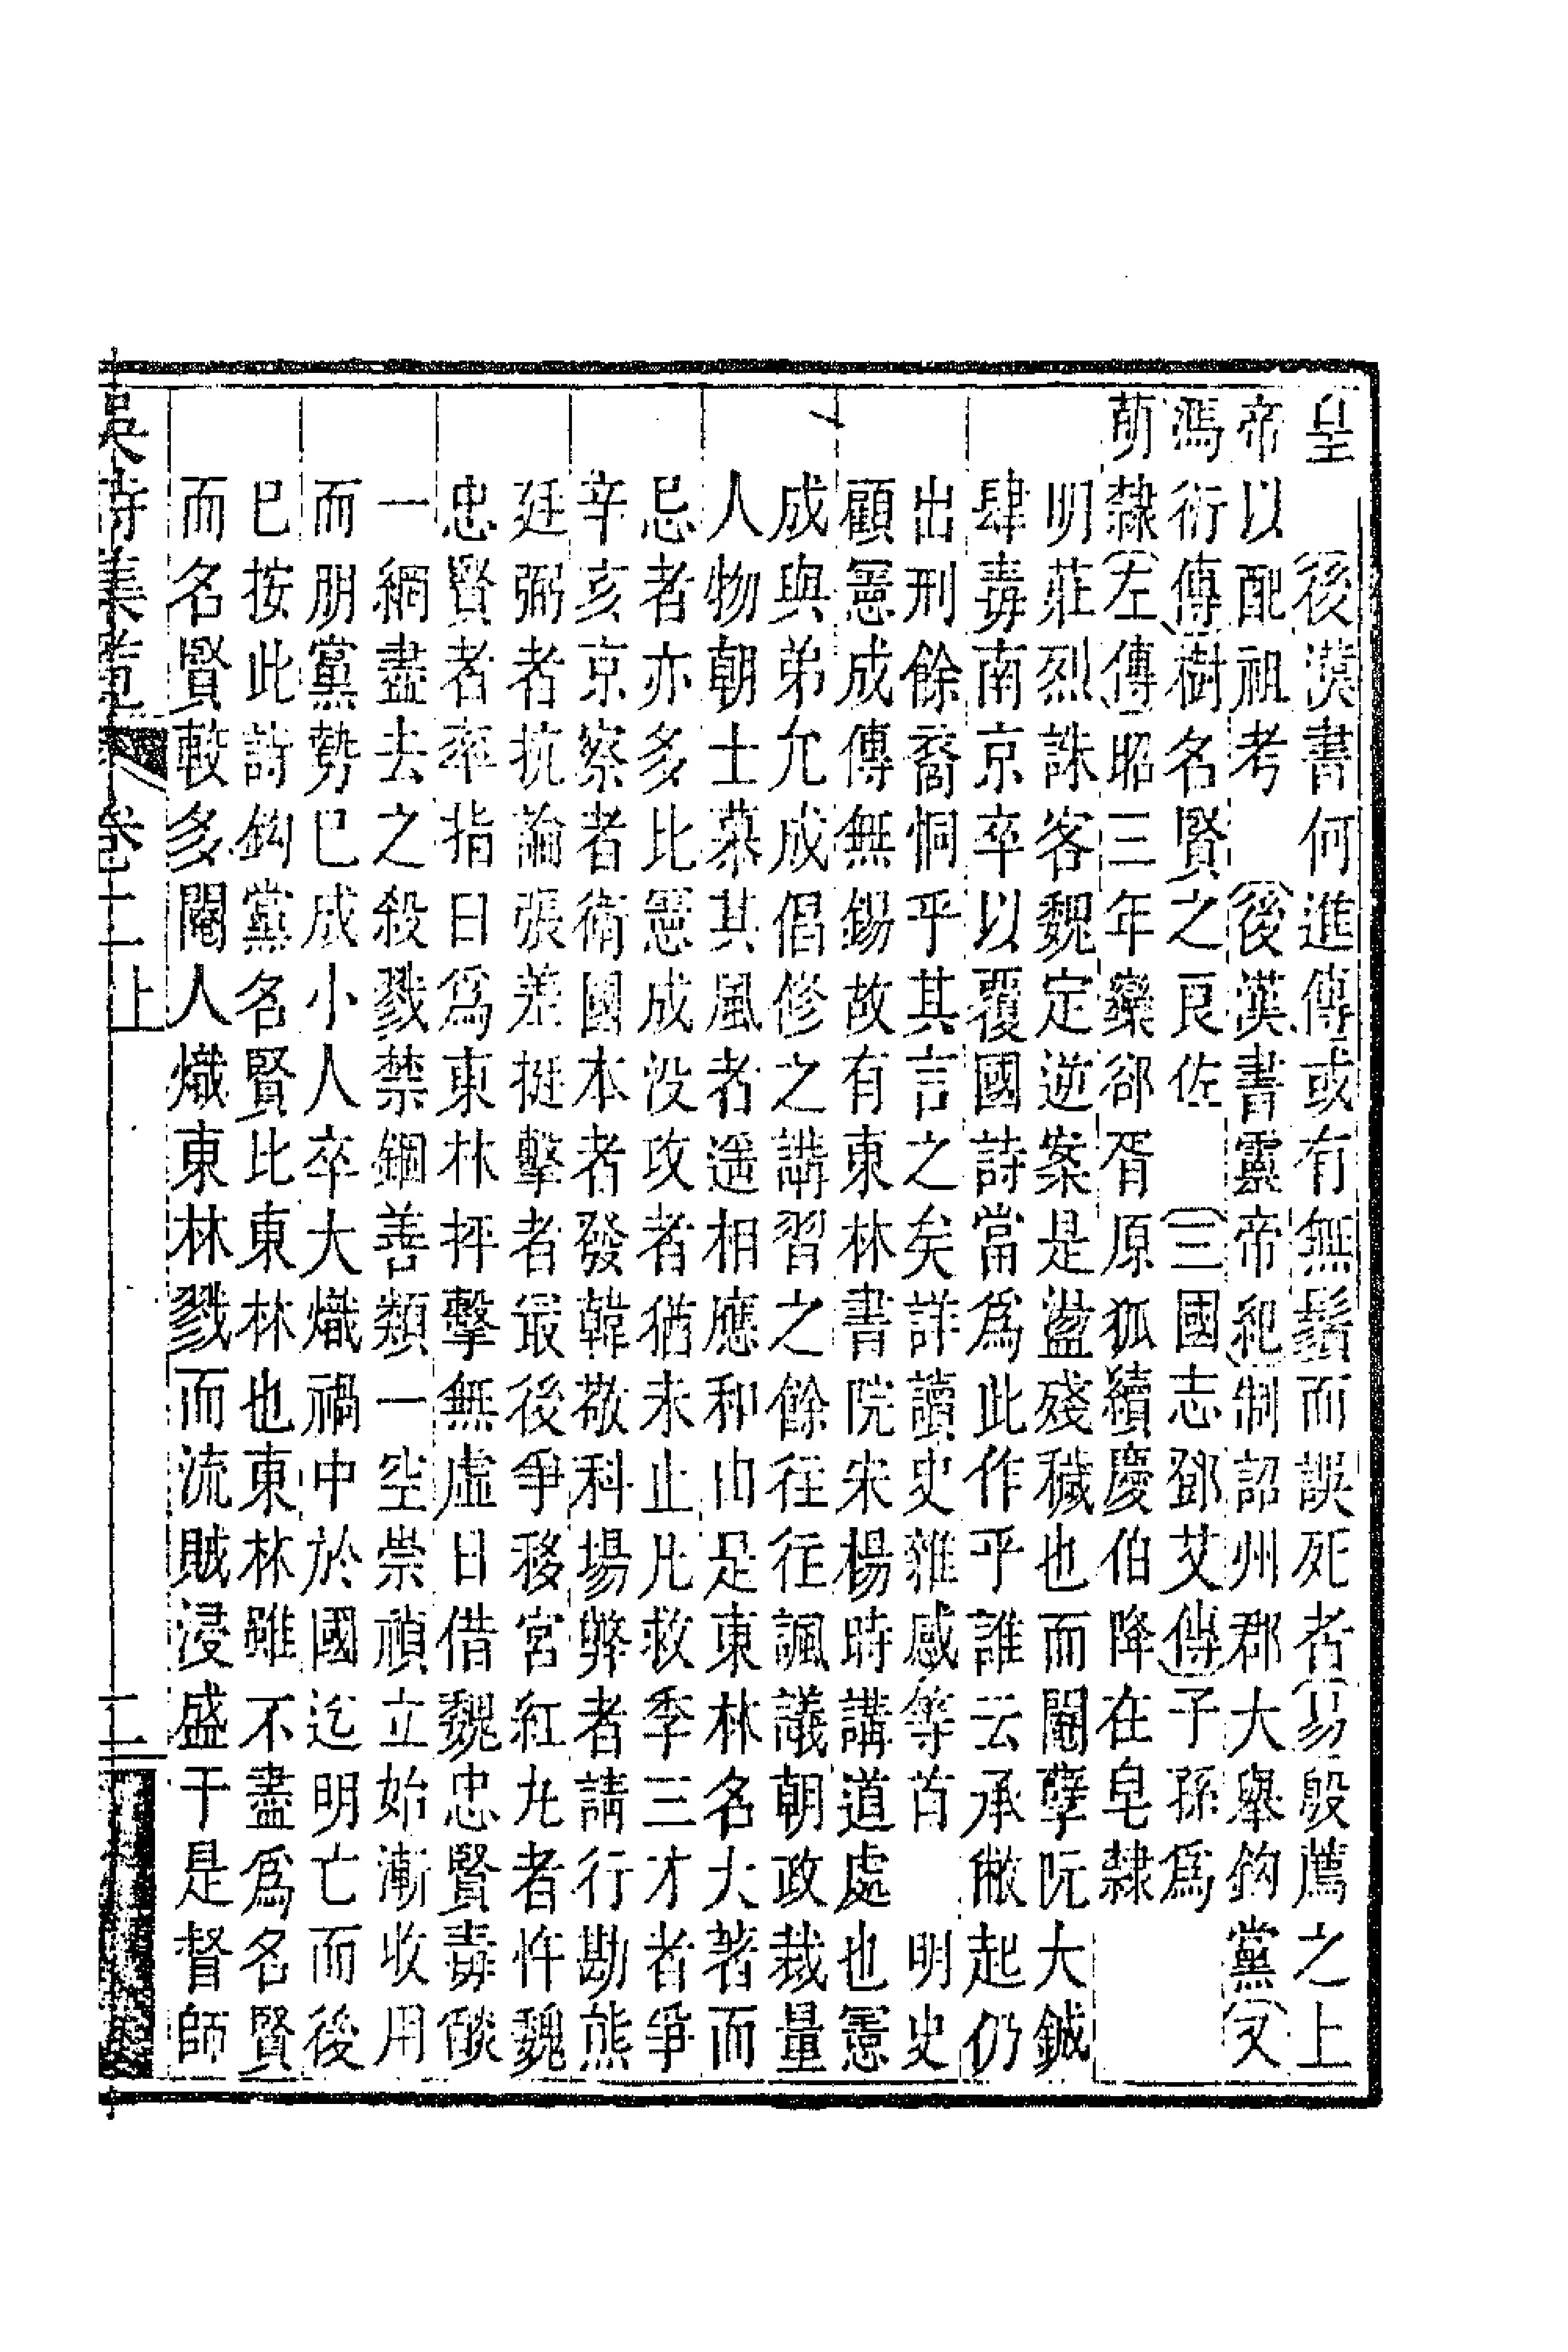 皇　後漢書何進傳或有無鬚而誤死者易殷薦之上
帝以配祖考　後漢書靈帝紀制詔州郡大舉鈎黨又
馮衍傳樹名賢之良佐　三國志鄧艾傳子孫爲
萌隸左傳昭三年欒郤胥原狐續慶伯降在皂隸
明莊烈誅客魏定逆案是盪殘穢也而閹孽阮大鋮
肆毒南京卒以覆國詩當爲此作乎誰云承敝起仍
出刑餘裔恫乎其言之矣詳讀史雜感等首　明史
顧憲成傳無錫故有東林書院宋楊時講道處也憲
成與弟允成倡修之講習之餘往往諷議朝政裁量
人物朝士慕其風者遥相應和由是東林名大著而
忌者亦多比憲成没攻者猶未止凡救李三才者爭
辛亥京察者衛國本者發韓敬科場弊者請行勘熊
廷弼者抗論張差挺擊者最後爭移宮紅丸者忤魏
忠賢者率指目爲東林抨擊無虛日借魏忠賢毒燄
一網盡去之殺戮禁錮善類一空崇禎立始漸收用
而朋黨勢已成小人卒大熾禍中於國迄明亡而後
已按此詩鈎黨名賢比東林也東林雖不盡爲名賢
而名賢較多閹人熾東林戮而流賊浸盛于是督師
吳詩集覽　卷二上　二